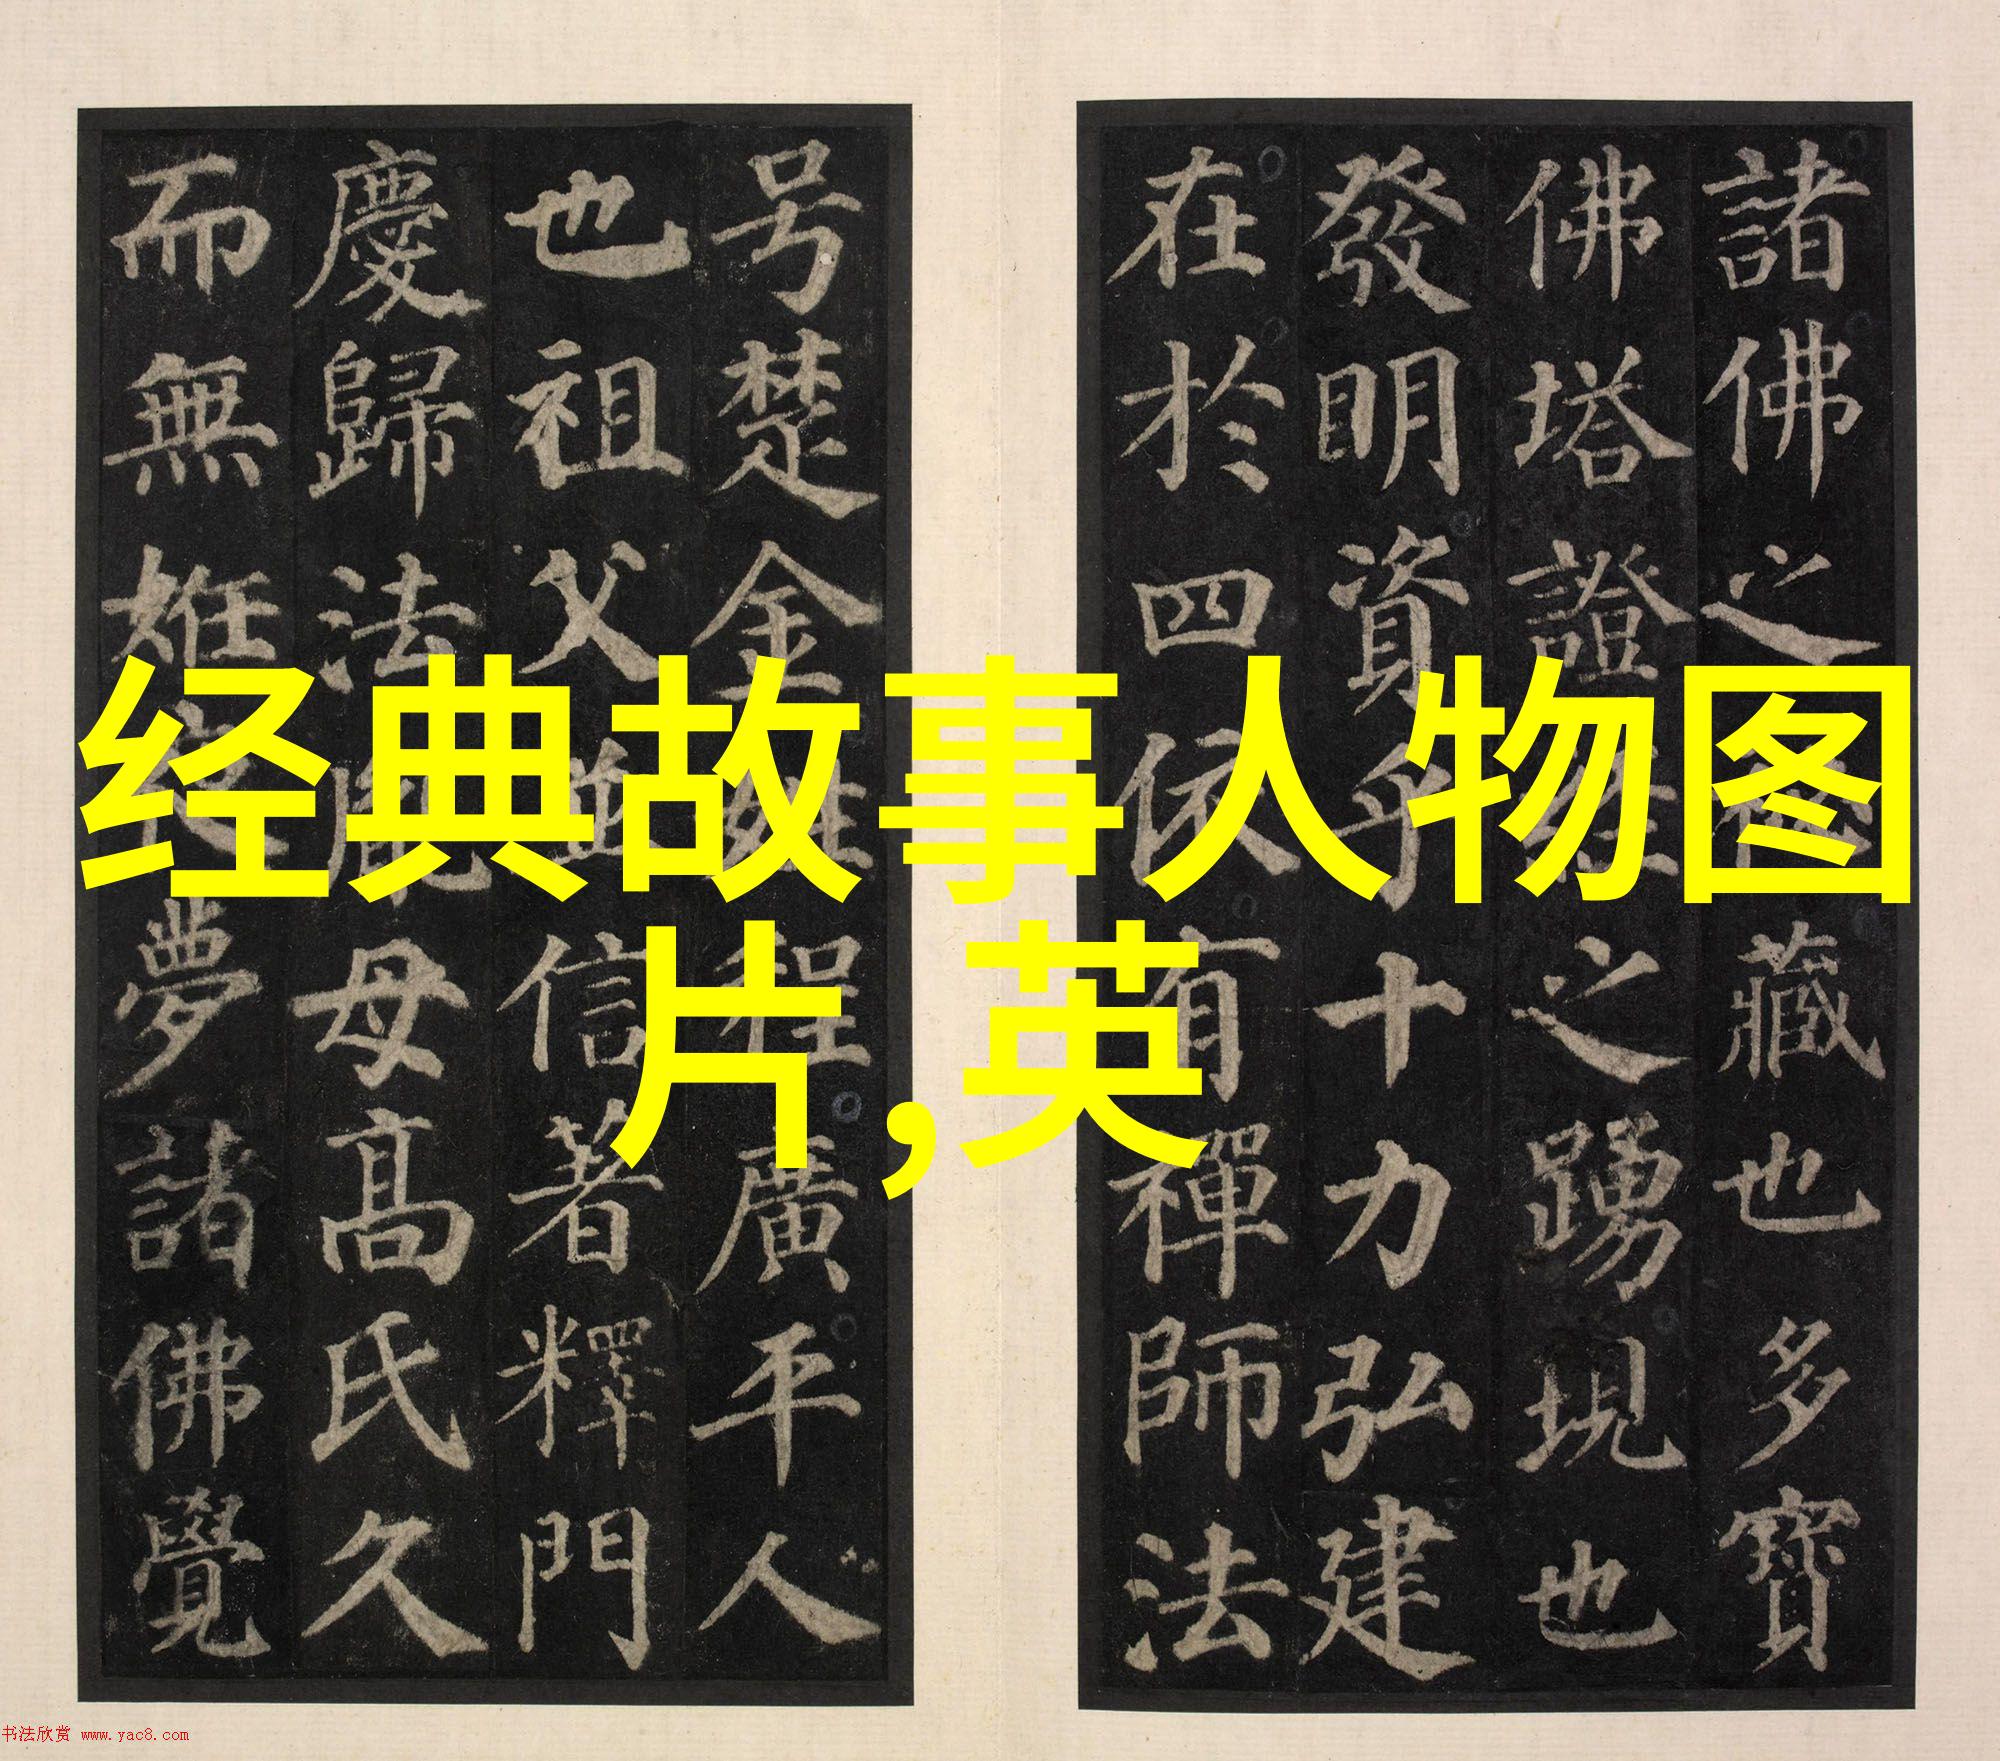 经典故事人物图
片,英
諸佛之秘藏也多寶
佛塔證經之踴現也
發明資乎十力弘建
在於四依有禪師法
号楚金姓程廣平人
也祖父並信著釋門
慶歸法胤母髙氏久
而無姙夜夢諸佛覺
书法欣赏 www.yac8.com